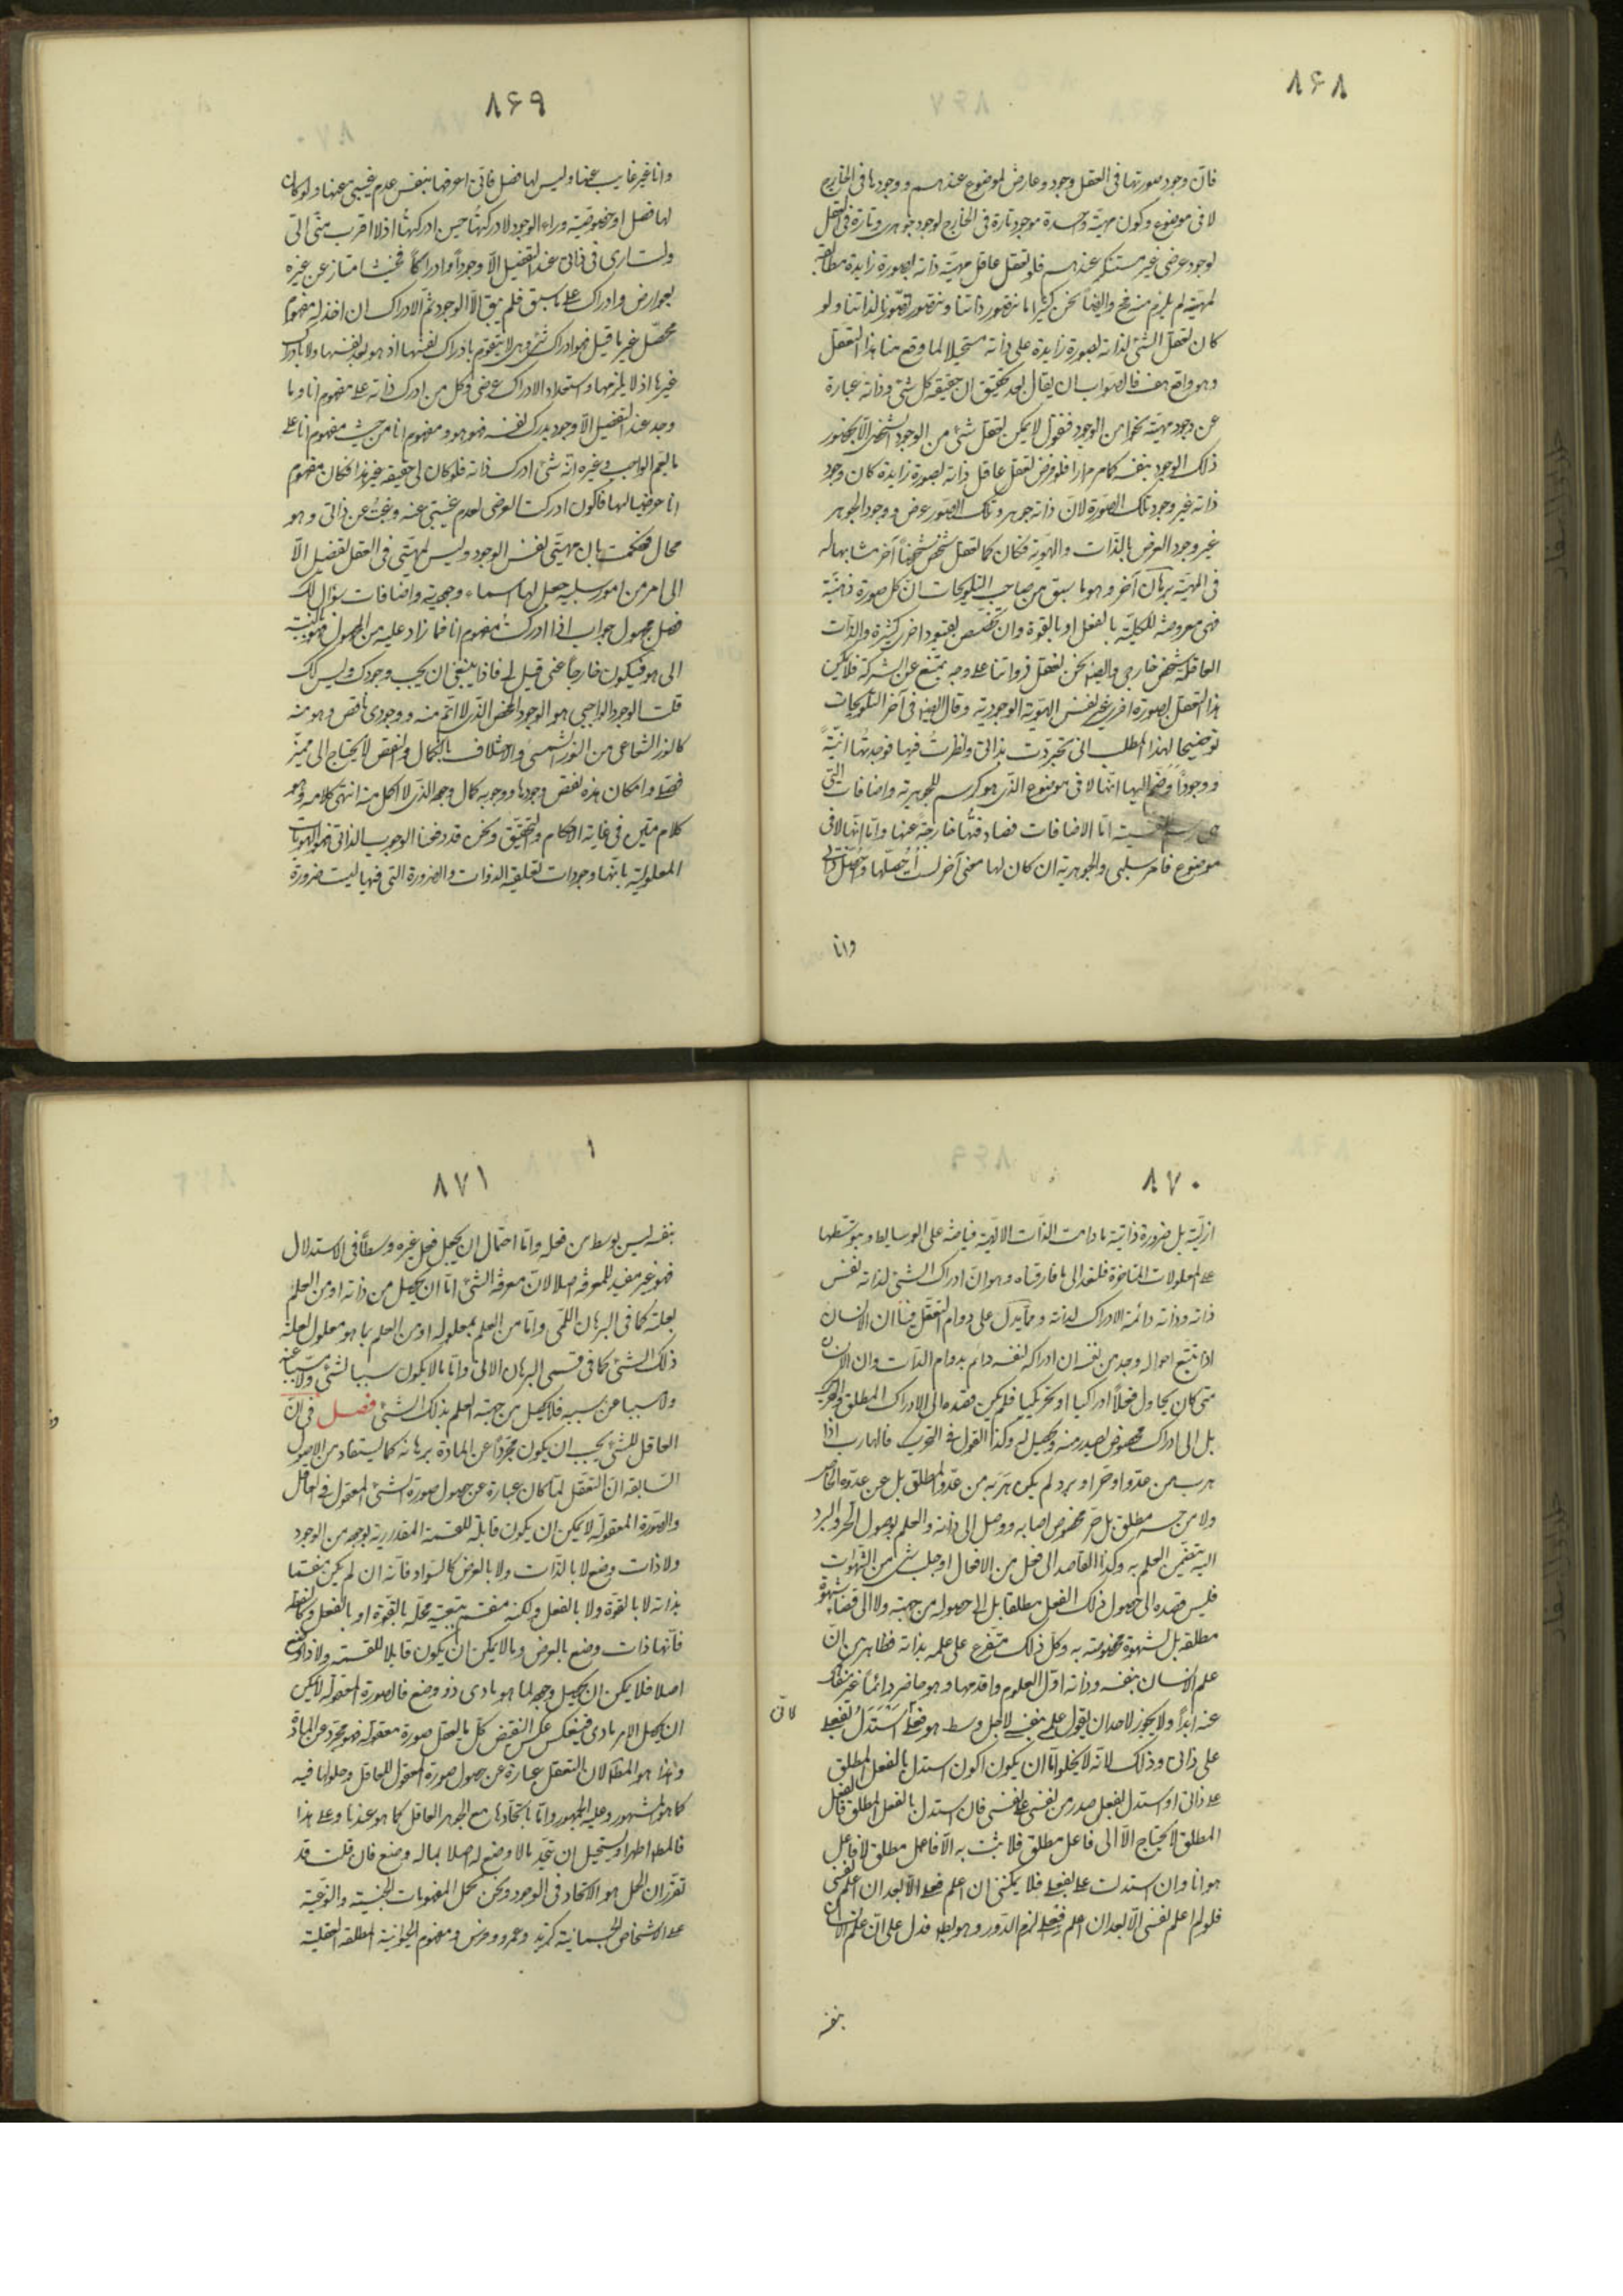 ٨۶٨
فان وجود صورتها فی العقل وجود عارض لموضوع عندهم و وجودها فی الخارج
لا فی موضوع وکون مهیّة واحدة موجود تارة فی الخارج لوجود جوهری و تارة فی العقل
لوجود عرضی غیر مستنکر عندهم فلو تعقل عاقل مهیّة ذاته بصورة زایدة مطابقة
لمهیّته لم یلزم منه وایضاً نحن کثیرا ما نتصور ذاتنا و نتصور تصورنا لذاتنا ولو
کان تعقل الشئ لذاته بصورة زایدة علی ذاته مستحیلا لما وقع منا هذا التعقل
وهو واقع هف فالصواب ان یقال بعد تحقیق ان حقیقة کل شئ وذاته عبارة
عن وجود مهیته نحوا من الوجود فنقول لا یمکن تعقل شئ من الوجود الشخصی الا بحضور
ذلک الوجود بنفسه کما مر مرارا فلو فرض تعقل عاقل ذاته بصورة زایدة کان وجود
ذاته غیر وجود تلک الصورة لان ذاته جوهر وتلک الصور عرض و وجود الجوهر
غیر وجود العرض بالذات والهویّة فکان کما تعقل شخص شخصاً آخر مشابها له
فی المهیّة برهان آخر وهو ما سبق من صاحب التلویحات ان کل صورة ذهنیّة
فهی معروضة للکلیّة بالفعل او بالقوة وان تخصص بقیود اخری کثیرة والذات
العاقلة شخص خارجی وایضا نحن نعقل ذواتنا علی وجه یمتنع عن الشرکة فلا یکون
هذا التعقل بصورة اخری غیر نفس الهویّة الوجودیة وقال ایضا فی آخر التلویحات
توضیحا لهذا المطلب انی تجردت بذاتی ونظرت فیها فوجدتها انیّةً
ووجوداً وضم الیها انها لا فی موضوع الذی هو کرسم للجوهریة واضافات التی
هی رسم النفسیة اما الاضافات فصادفتها خارجة عنها واما انها لا فی
موضوع فامر سلبی والجوهریة ان کان لها معنی آخر لست أحصلها وأحصل ذاتی
وانا
٨۶٩
وانا غیر غایب عنها ولیس لها فصل فانی اعرفها بنفس عدم غیبتی عنها ولو کان
لها فصل او خصوصیّة وراء الوجود لادرکتها حین ادرکتها اذ لا اقرب منی الیّ
ولست اری فی ذاتی عند التفصیل الا وجوداً وادراکاً فحیث امتاز عن غیره
بعوارض وادراک علی ما سبق فلم یبق الا الوجود ثم الادراک ان اخذ له مفهوم
محصل غیر ما قیل فهو ادراک شئ وهی لا یتقوم بادراک نفسها اذ هو بعد نفسها ولا بادراک
غیرها اذ لا یلزمها واستعداد الادراک عرضی وکل من ادرک ذاته علی مفهوم انا وما
وجد عند التفصیل الا وجود یدرک نفسه فهو هو ومفهوم انا من حیث مفهوم انا علی
ما یعم الواجب وغیره انه شئ ادرک ذاته فلو کان لی حقیقة غیر هذا فکان مفهوم
انا عرضیا لها فاکون ادرکت العرضی لعدم غیبتی عنه وغبتُ عن ذاتی وهو
محال فحکمت بان مهیّتی نفس الوجود ولیس لمهیّتی فی العقل تفصیل الا
الی امر من امور سلبیة جعل لها اسماء وجودیة واضافات سؤال لک
فصل مجهول جواب اذا ادرکت مفهوم انا فما زاد علیه من المجهول فهو بالنسبة
الی هو فیکون خارجاً عنی قیل لی فاذا ینبغی ان یجب وجودک ولیس کک
قلت الوجود الواجبی هو الوجود المحض الذی لا اتم منه و وجودی ناقص وهو منه
کالنور الشعاعی من النور الشمسی والاختلاف بالکمال والنقص لا یحتاج الی ممیّز
فصلی وامکان هذه نقص وجودها ووجوبه کمال وجوده الذی لا اکمل منه انتهی کلامه وهو
کلام متین فی غایة الاحکام والتحقیق ونحن قد دفعنا الوجوب الذاتی فی الهویات
المعلولیّة بانها وجودات تعلقیة الذوات والضرورة التی فیها لیست ضرورة
٨٧٠
ازلیّة بل ضرورة ذاتیة مادامت الذات الالهیّة فیاضة علی الوسایط وبتوسطها
علی المعلولات المتاخرة فلنعد الی ما فارقناه وهو ان ادراک الشئ لذاته نفس
ذاته وذاته دائمة الادراک لذاته ومما یدل علی دوام التعقل منا ان الانسان
اذا تتبع احواله وجد من نفسه ان ادراکه لنفسه دائم بدوام الذات وان الانسان
متی کان یحاول فعلاً ادراکیا او تحریکیا فلم یکن قصده الی الادراک المطلق والتحریک
بل الی ادراک مخصوص یصدر منه ویحصل له وکذا القول فی التحریک فالهارب اذا
هرب من عدو او حر او برد لم یکن هربه من عدو المطلق بل عن عدوه الخاص
ولا من حر مطلق بل حر مخصوص اصابه ووصل الی ذاته والعلم بوصول الحر والبرد
الیه یتضمن العلم به وکذا القاصد الی فعل من الافعال او جلب شئ من الشهوات
فلیس قصده الی حصول ذلک الفعل مطلقا بل الی حصوله من جهته ولا الی قضاء شهوة
مطلقة بل لشهوة مخصوصة به وکل ذلک متفرع علی علمه بذاته فظاهر من ان
علم الانسان بنفسه وذاته اول العلوم واقدمها وهو حاضر دائماً غیر منفک
عنه ابداً ولا یجوز لاحد ان یقول علمی بنفسی لاجل وسط هو فعلی استدل بفعلی
علی ذاتی وذلک لانه لا یخلو اما ان یکون اکون استدل بالفعل المطلق
علی ذاتی او استدل بفعل صدر من نفسی علی نفسی فان استدل بالفعل المطلق فالفعل
المطلق لا یحتاج الا الی فاعل مطلق فلا یثبت به الا فاعل مطلق لا فاعل
هو انا وان استدلت علی بفعلی فلا یمکننی ان اعلم فعلی الا بعد ان اعلم نفسی
فلو لم اعلم نفسی الا بعد ان اعلم فعلی لزم الدور وهو بط فدل علی ان علم الانسان
بنفسه
لانی
٨٧١
بنفسه لیس بوسط من فعله واما احتمال ان یجعل فعل غیره وسطاً فی الاستدلال
فهو غیر مفید للمعرفة اصلا لان معرفة الشئ اما ان یحصل من ذاته او من العلم
بعلته کما فی البرهان اللمی واما من العلم بمعلوله او من العلم بما هو معلول لعلة
ذلک الشئ کما فی قسمی البرهان الانی واما ما لا یکون سببا لشئ ولا مسببا عنه
ولا مسببا من سببه فلا یحصل من جهته العلم بذلک الشئ فصل فی ان
العاقل للشئ یجب ان یکون مجرداً عن المادة برهانه کما یستفاد من الاصول
السابقة ان التعقل لما کان عبارة عن حصول صورة الشئ المعقول فی العاقل
والصورة المعقولة لا یمکن ان یکون قابلة للقسمة المقداریة بوجه من الوجود
ولا ذات وضع لا بالذات ولا بالعرض کالسواد فانه ان لم یکن منقسما
بذاته لا بالقوة ولا بالفعل ولکنه منقسم بتبعیة محله بالقوة او بالفعل وکالنقطة
فانها ذات وضع بالعرض وما لا یمکن ان یکون قابلا للقسمة ولا ذا وضع
اصلا فلا یمکن ان یحصل وجوده لما هو مادی ذو وضع فالصورة المعقولة لا یمکن
ان یحصل لامر مادی فینعکس عکس النقیض کل ما یعقل صورة معقولة فهو مجرد عن المادة
وهذا هو المط لان التعقل عبارة عن حصول صورة المعقول للعاقل وحلولها فیه
کما هو المشهور وعلیه الجمهور واما باتحادها مع الجوهر العاقل کما هو عندنا وعلی هذا
فالمط اظهر او یستحیل ان یتحد ما لا وضع له اصلا بما له وضع فان قلت قد
تقرر ان الحمل هو الاتحاد فی الوجود ونحن نحمل المفهومات الجنسیّة والنوعیّة
علی الاشخاص الجسمانیّة کزید وعمرو وفرس ومفهوم الحیوانیّة المطلقة العقلیة